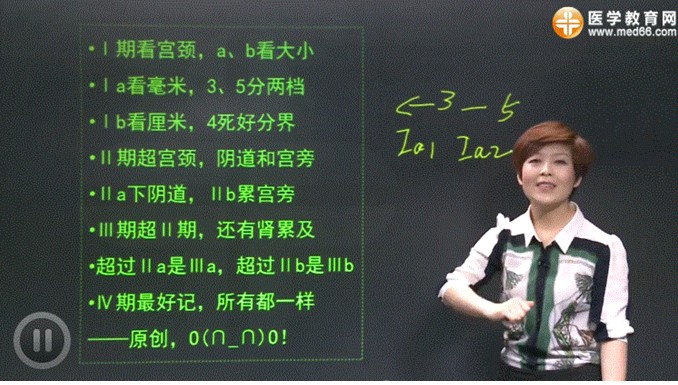 ·Ⅰ期看宫颈，a、b看大小
·Ⅰa看毫米，3、5分两档
·Ⅰb看厘米，4死好分界
·Ⅱ期超宫颈，阴道和宫旁
·Ⅱa下阴道，Ⅱb累宫旁
·Ⅲ期超Ⅱ期，还有肾累及
·超过Ⅱa是Ⅲa，超过Ⅱb是Ⅲb
·Ⅳ期最好记，所有都一样
——原创，O(∩_∩)O!
←3—5
Ia1 Ia2
医学教育网
www.med66.com